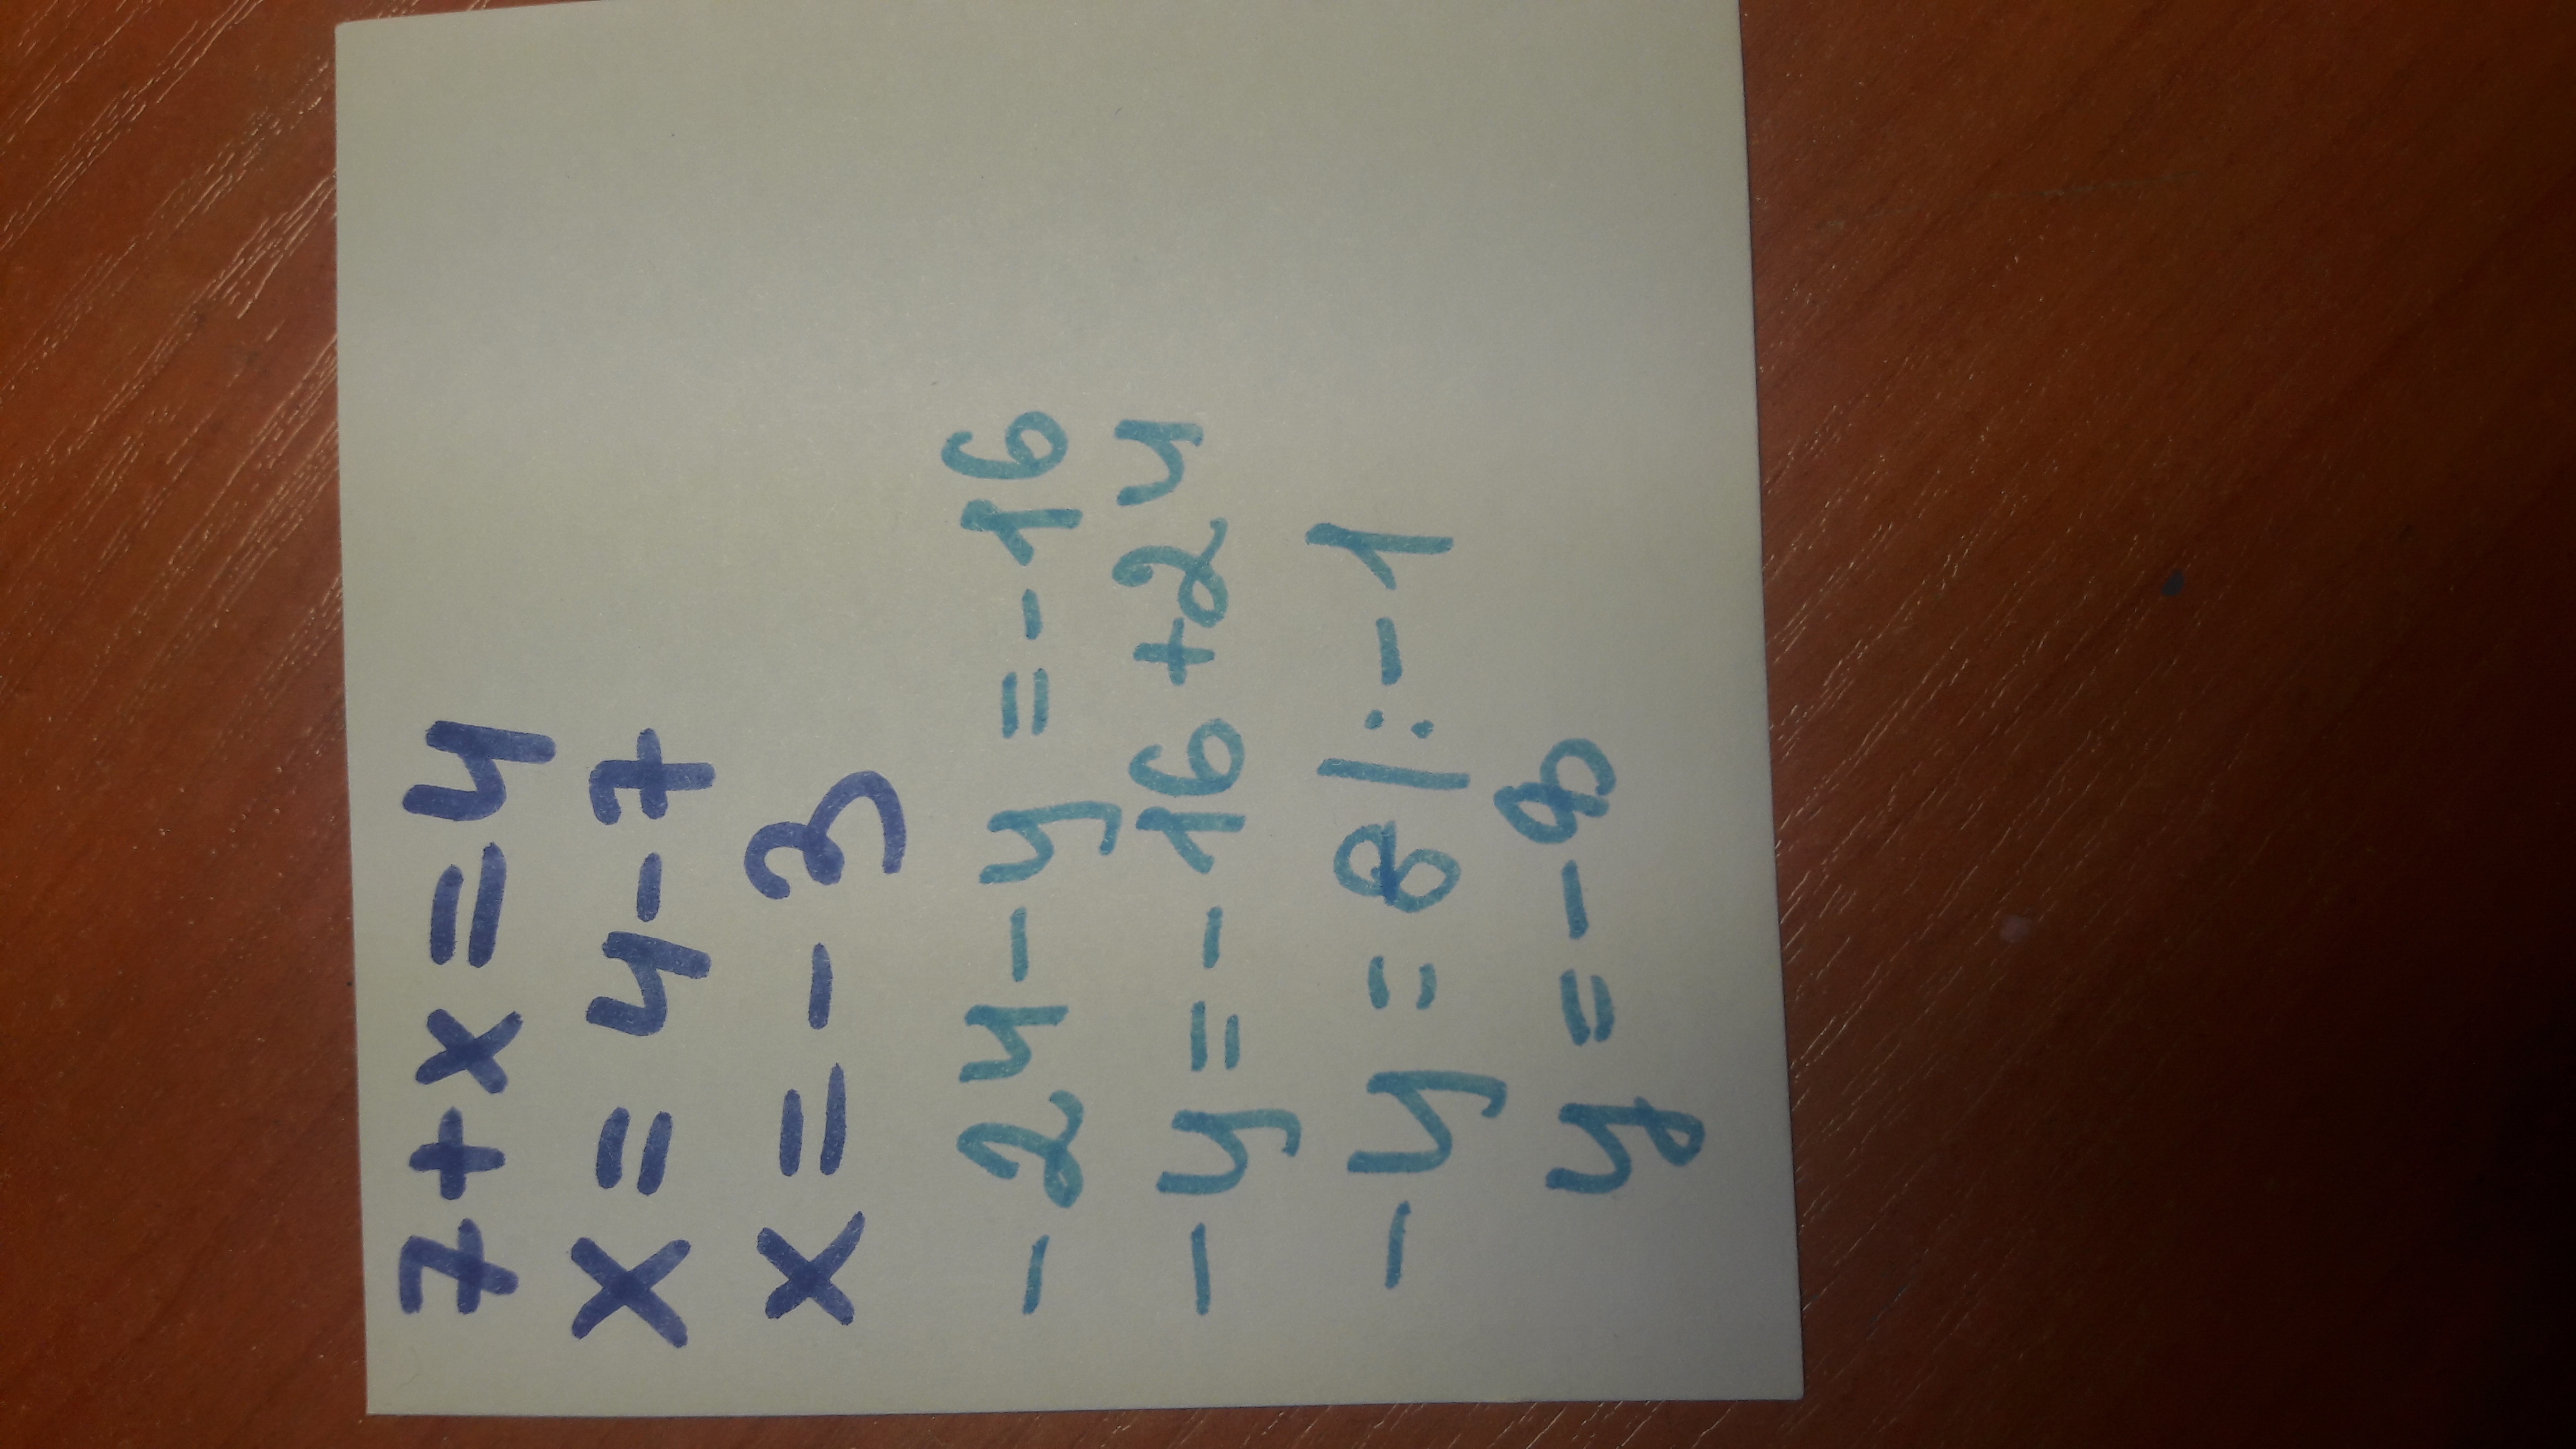 7+x=4
x=4-7
x=-3
-24-y=-16
-y=-16+24
-y=8|:-1
y=-8